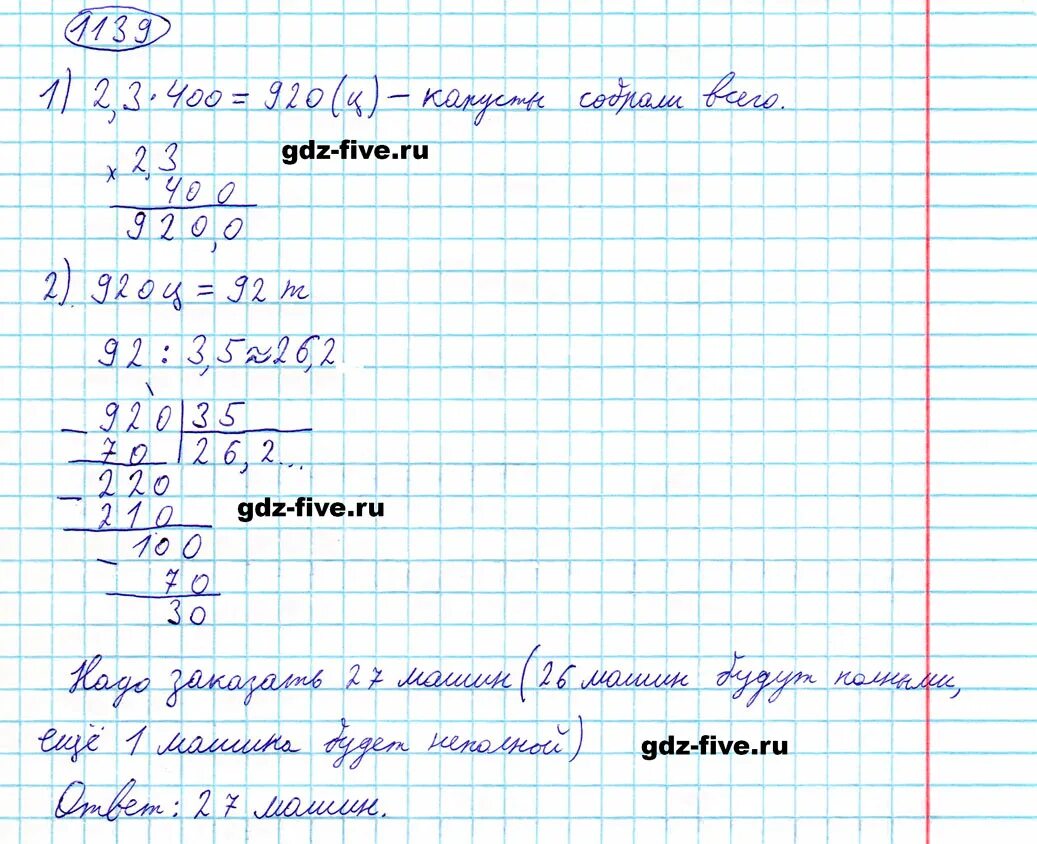 1139
1) 2,3·400=920(ц)-капусты собрали всего.
gdz-five.ru
x 2,3
400
920,0
2) 920ц = 92 т
92 : 3,5≈26,2
- 920 | 35
70 | 26,2...
- 220
210
gdz-five.ru
- 100
70
30
Надо заказать 27 машин (26 машин будут полными,
ещё 1 машина будет неполной)
gdz-five.ru
Ответ: 27 машин.